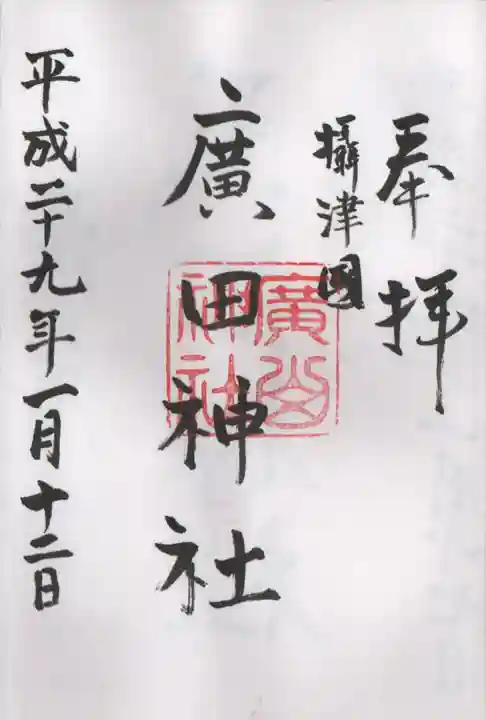 奉拝
攝津國
廣田神社
廣田
神社
平成二十九年一月十二日